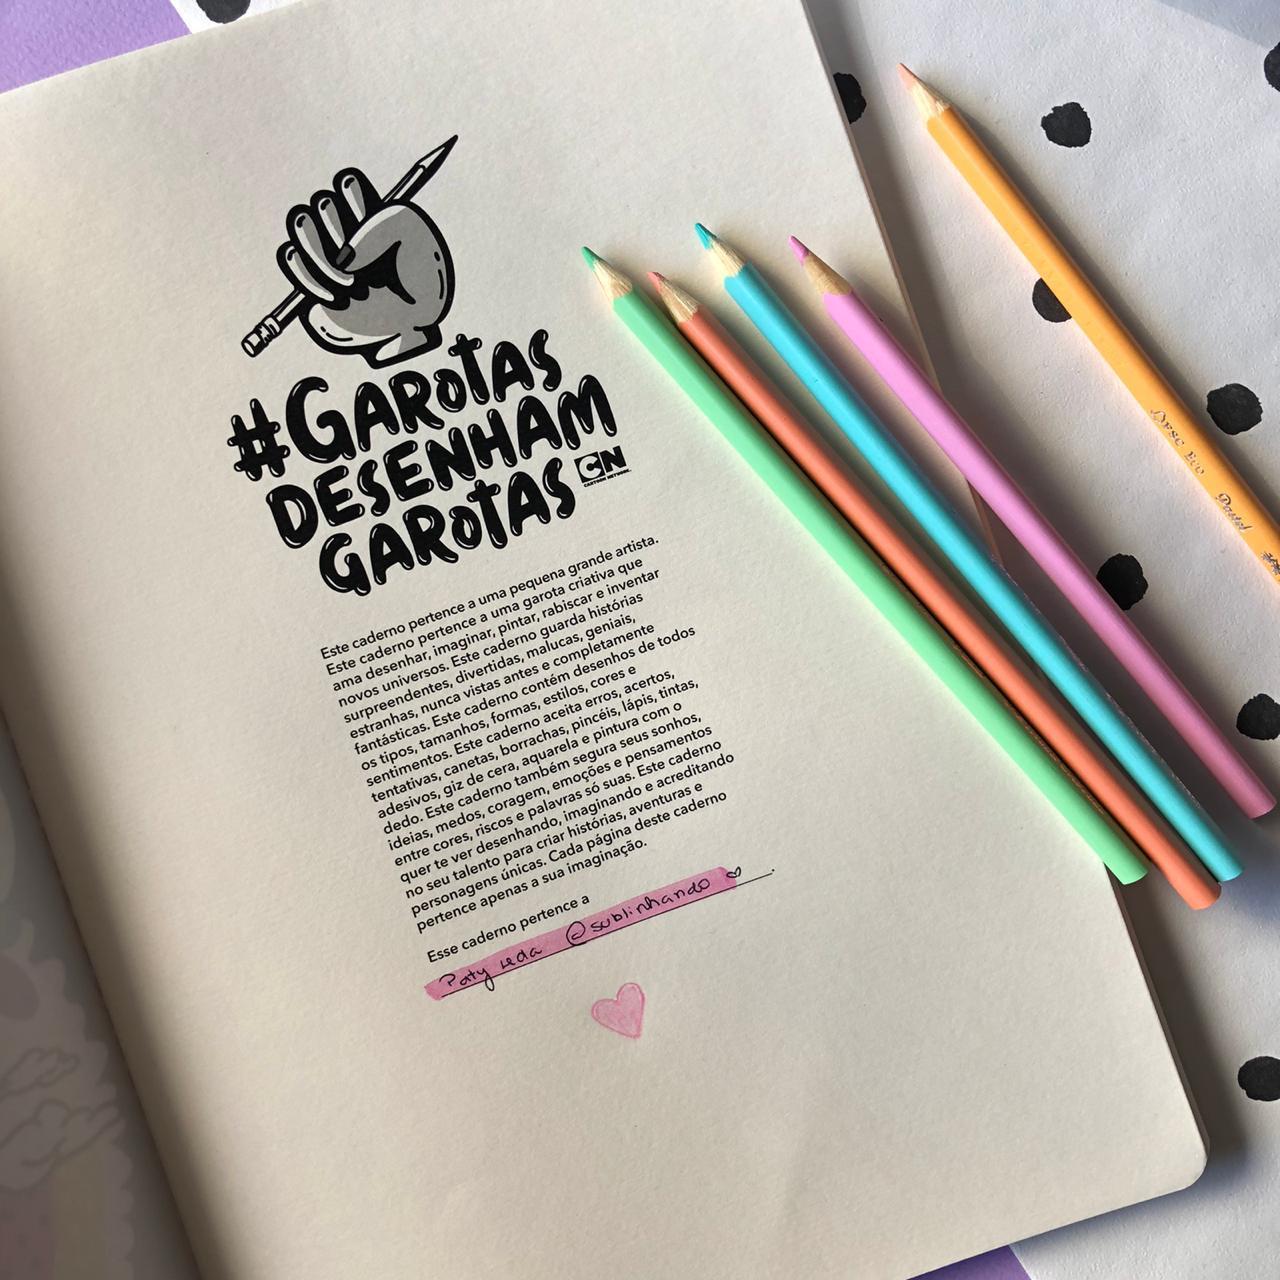 #GAROTAS
DESENHAM
GAROTAS
CN
CARTOON NETWORK
Este caderno pertence a uma pequena grande artista.
Este caderno pertence a uma garota criativa que
ama desenhar, imaginar, pintar, rabiscar e inventar
novos universos. Este caderno guarda histórias
surpreendentes, divertidas, malucas, geniais,
estranhas, nunca vistas antes e completamente
fantásticas. Este caderno contém desenhos de todos
os tipos, tamanhos, formas, estilos, cores e
sentimentos. Este caderno aceita erros, acertos,
tentativas, canetas, borrachas, pincéis, lápis, tintas,
adesivos, giz de cera, aquarela e pintura com o
dedo. Este caderno também segura seus sonhos,
ideias, medos, coragem, emoções e pensamentos
entre cores, riscos e palavras só suas. Este caderno
quer te ver desenhando, imaginando e acreditando
no seu talento para criar histórias, aventuras e
personagens únicas. Cada página deste caderno
pertence apenas a sua imaginação.
Esse caderno pertence a
Paty @sublinhando
Eco Pastel